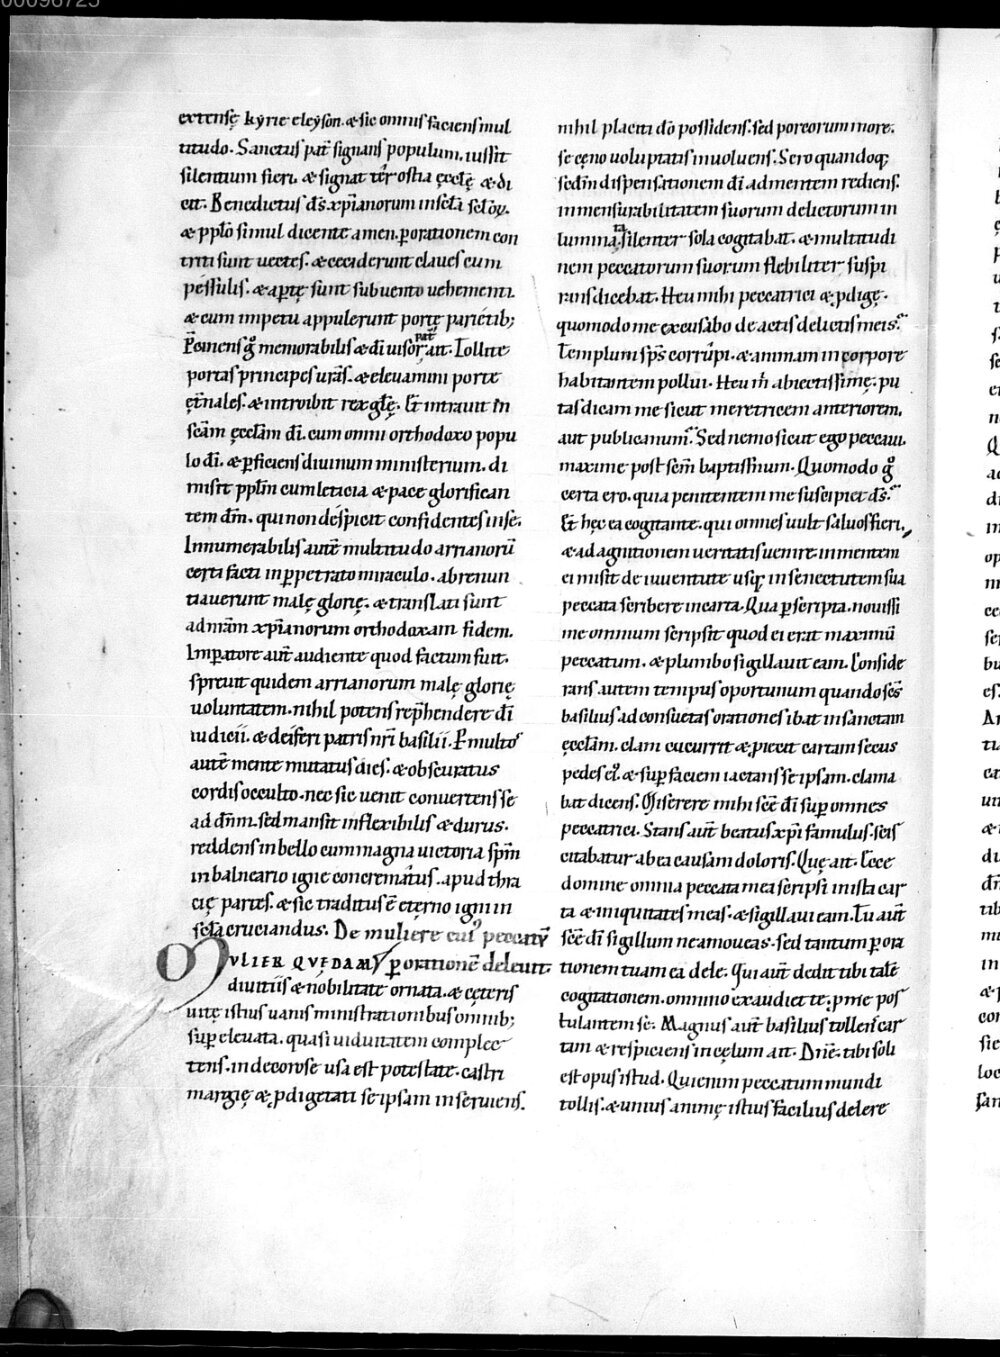 00098725
extensę kyrie eleyson. & sic omnis faciens mul
titudo. Sanctus pat̄ signans populum. iussit
silentium fieri. & signat t̄er ostia ęcclę & di
cit. Benedictus d̄s xp̄ianorum in sc̄la sc̄lorꝝ.
& pplo simul dicente amen. ꝑ orationem con
triti sunt uectes. & ceciderunt claues cum
pessulis. & aꝑtę sunt sub uento uehementi.
& cum impetu appulerunt portę parietib;
memorabilis & dī uisor pat̄ ait. Tollite
portas principes ur̄as. & eleuamini porte
ęt̄nales. & introibit rex glę. Et intrauit in
sc̄am ęcclam dī. cum omni orthodoxo popu
lo dī. & ꝑficiens diuinum ministerium. di
misit pplm cum leticia & pace glorifican
tem dn̄m. qui non despicit confidentes in se.
Innumerabilis autē multitudo arrianorū
certi facti in ꝑpetrato miraculo. abrenun
tiauerunt malę glorię. & translati sunt
ad nr̄am xp̄ianorum orthodoxam fidem.
Imperatore aut̄ audiente quod factum fuit.
spreuit quidem arrianorum malę glorię
uoluntatem. nihil potens rep̄hendere dī
iudicii. & deiferi patris nr̄i basilii. P multos
autē mente mutatus dies. & obscuratus
cordis occulto. nec sic uenit conuertens se
ad dn̄m. sed mansit inflexibilis & durus.
reddens in bello cum magna uictoria sp̄m
in balneario igne concrematus. apud thra
cię partes. & sic traditus ē ęterno igni in
sc̄la cruciandus. De muliere cui᾽ peccatū
MVLIER QVĘDAM ꝑ orationē deleuit
diuitiis & nobilitate ornata. & cęteris
uitę istius uanis ministrationibus omnib;
sup̄ eleuata. quasi uiduitatem complec
tens. indecorose usa est potestate. castri
margię & ꝓdigetati se ipsam inseruiens.
nihil placiti dō possidens. sed porcorum more.
se cęno uoluptatis inuoluens. Sero quandoq;
sedm̄ dispensationem dī ad mentem rediens.
inmensurabilitatem suorum delictorum in
lumināta. silenter sola cogitabat. & multitudi
nem peccatorum suorum flebiliter suspi
rans dicebat. Heu mihi peccatrici & ꝓdigę.
quomodo me excusabo de actis delictis meis.
Templum sp̄s corrupi. & animam in corpore
habitantem pollui. Heu m̄ abiectissimę. pu
tas dicam me sicut meretricem anteriorem.
aut publicanum. Sed nemo sicut ego peccaui.
maxime post sc̄m baptismum. Quomodo gͦ
certa ero. quia penitentem me suscipiet d̄s.
Et hęc ea cogitante. qui omnes uult saluos fieri.
& ad agnitionem ueritatis uenire. in mentem
ei misit de iuuentute usq; in senectutem sua
peccata scribere in carta. Qua ꝑscripta. nouissi
me omnium scripsit quod ei erat maximū
peccatum. & plumbo sigillauit eam. Conside
rans autem tempus oportunum quando sc̄s
basilius ad consuetas orationes ibat in sanctam
ęcclam. clam cucurrit & ꝓiecit cartam secus
pedes ei᾽. & sup̄ faciem iactans se ipsam. clama
bat dicens. Miserere mihi sc̄e dī sup̄ omnes
peccatrici. Stans aut̄ beatus xp̄i famulus. scis
citabatur ab ea causam doloris. Quę ait. Ecce
domine omnia peccata mea scripsi in ista car
ta & iniquitates meas. & sigillaui eam. Tu aut̄
sc̄e dī sigillum ne amoueas. sed tantum ꝑ ora
tionem tuam ea dele. Qui aut̄ dedit tibi talē
cogitationem. omnino exaudiet te. ꝓ me pos
tulantem se. Magnus aut̄ basilius tollens car
tam & respiciens in cęlum ait. Dn̄e. tibi soli
est opus istud. Qui enim peccatum mundi
tollis. & unius animę istius facilius delere